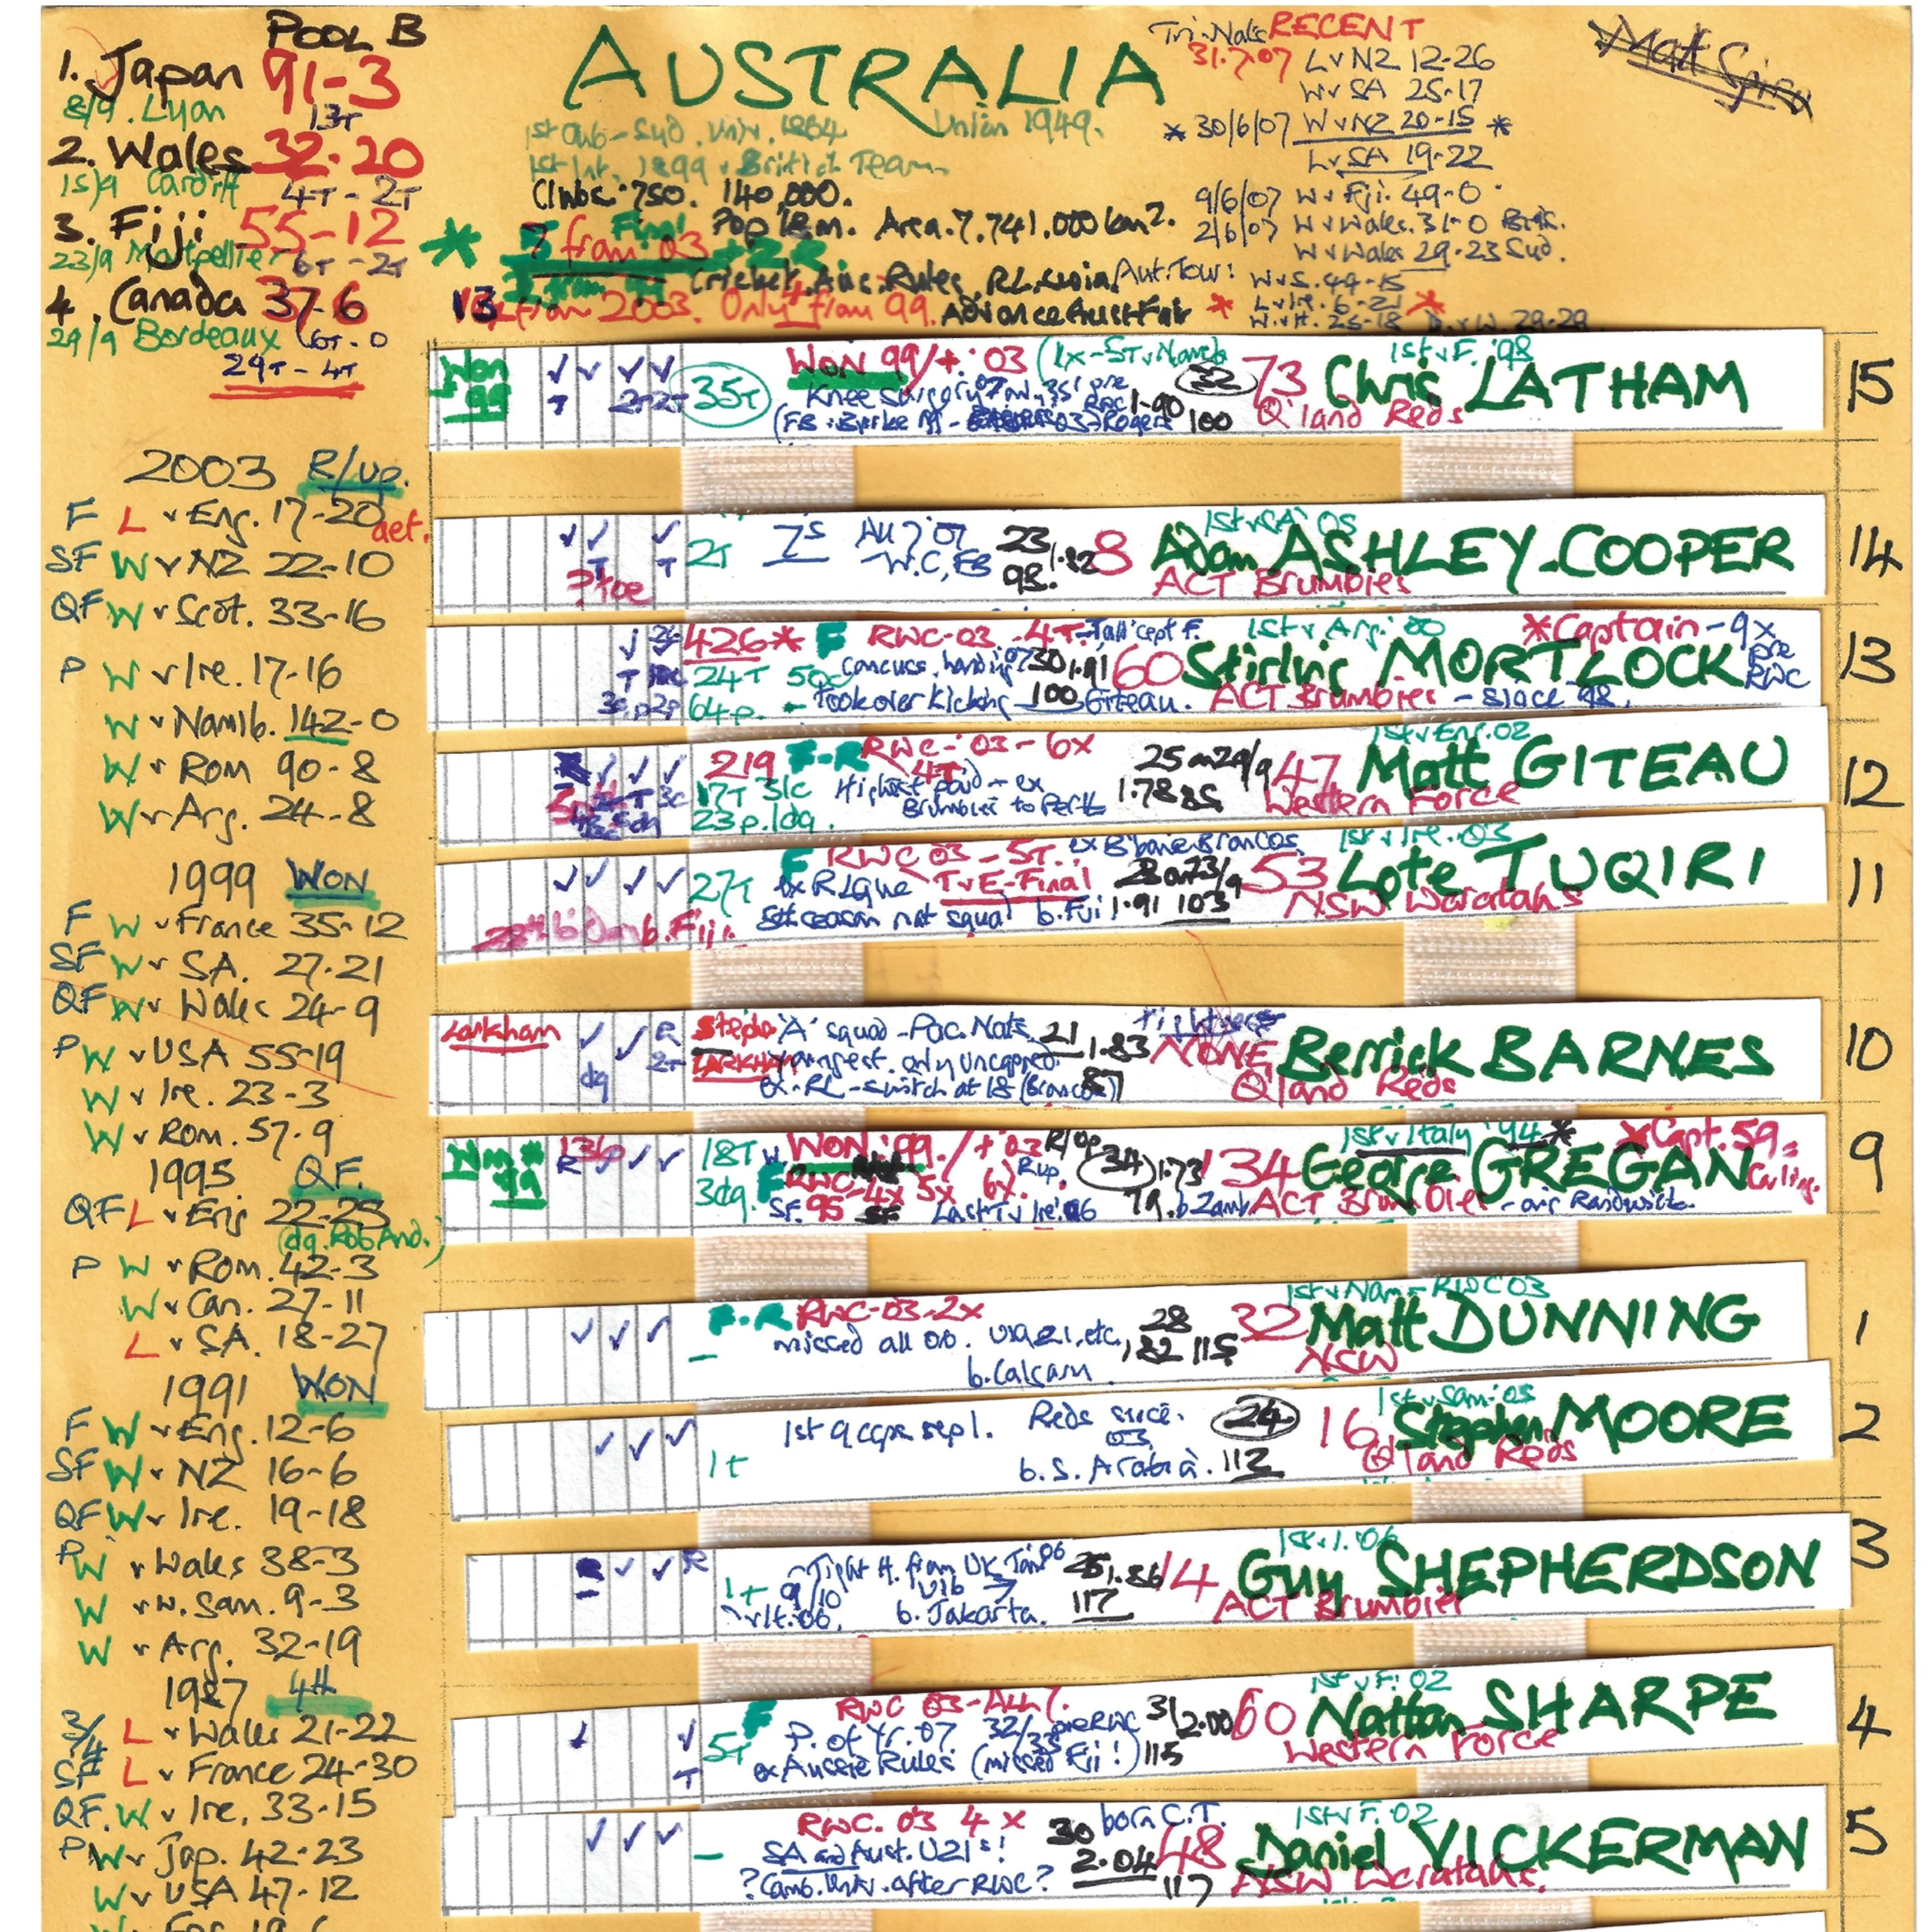 POOL B
1. Japan 91-3
8/9. Lyon 13T
2. Wales 32-20
15/9 Cardiff 4T - 2T
3. Fiji 55-12
23/9 Montpellier 6T - 2T
4. Canada 37-6
29/9 Bordeaux 6T-0
29T - 4T
2003 R/up.
F L v Eng. 17-20 aet.
SF W v NZ 22-10
QF W v Scot. 33-16
P W v Ire. 17-16
W v Namib. 142-0
W v Rom 90-8
W v Arg. 24-8
1999 WON
F W v France 35-12
SF W v SA. 27-21
QF W v Wales 24-9
P W v USA 55-19
W v Ire. 23-3
W v Rom. 57-9
1995 QF.
QF L v Eng 22-25
(dg. Rob And.)
P W v Rom. 42-3
W v Can. 27-11
L v SA. 18-27
1991 WON
F W v Eng. 12-6
SF W v NZ 16-6
QF W v Ire. 19-18
P W v Wales 38-3
W v W. Sam. 9-3
W v Arg. 32-19
1987 4th
3/4 L v Wales 21-22
SF L v France 24-30
QF. W v Ire. 33-15
P W v Jap. 42-23
W v USA 47-12
AUSTRALIA
1st Club - Syd. Univ. 1864 Union 1949.
1st Int. 1899 v British Team
Clubs. 750. 140,000.
Final Pop 18m. Area. 7.741.000 km2.
7 from 03 + 2R
Cricket, Aus. Rules, RL, Union
13 from 2003. Only 4 from 99. Advance Aust Fair
Tri-Nats RECENT
31.7.07 L v NZ 12-26
W v SA 25-17
* 30/6/07 W v NZ 20-15 *
L v SA 19-22
9/6/07 W v Fiji. 49-0
2/6/07 W v Wales. 31-0 Bris.
W v Wales 29-23 Syd.
Aut. Tour: W v S. 44-15
* L v Ire. 6-21 *
W v It. 25-18 D v W. 29-29
Matt Giteau
Won 99 35T WON 99/+ '03 (1x-5T v Namib 32 73 1st v F. '98 Chris LATHAM 15
Knee surgery 07 pre RWC 1-90 100 Q'land Reds
2T 7s AU 7 '07 W.C, FB 23 1.82 98. 8 1st v SA '05 Adam ASHLEY-COOPER 14
? toe ACT Brumbies
426* F RWC-03 - 4T 1st v Arg. '00 *Captain - 9x pre RWC
24T 50c Concuss. 30 1.91 60 Stirling MORTLOCK 13
64p. - Took over kicking 100 Giteau. ACT Brumbies - since 98.
219 F-R RWC-'03 - 6x 4T 25 on 29/9 47 1st v Eng. 02 Matt GITEAU 12
17T 31c Highest paid - ex 1.78 85 Western Force
23p. 1dg. Brumbies to Perth
27T F RWC 03 - 5T. ex B'bane Broncos 1st v Ire. 03
ex RLgue T v E-Final 53 Lote TUQIRI 11
5th season not squad b. Fiji 1.91 103 NSW Waratahs
Larkham Stephen LARKHAM 'A' squad - Pac. Nats. 21 1.83 NONE Berrick BARNES 10
youngest. only uncapped 87 Q'land Reds
ex-RL - switch at 18 (Broncos)
Won 99 136 18T WON '99 /+ '03 R/up 34 1.73 134 1st v Italy '94 * * Capt. 59
3dg. F RWC-4x 5x 6x. George GREGAN 9
SF. 95 Last T v Ire. 06 79. b Zamb ACT Brumbies - orig Randwick
F-R RWC-03-2x 28 32 1st v Nam - RWC 03 Matt DUNNING 1
missed all 06. 1.82 115 NSW
b. Calgary
1st 9 caps repl. Reds since 03 24 16 1st v Sam. 05 Stephen MOORE 2
1t b. S. Arabia. 112 Q'land Reds
1t Tight H. from UK Tour 06 25 1.86 14 1st v I. '06 Guy SHEPHERDSON 3
b. Jakarta. 117 ACT Brumbies
5T F RWC 03-All 7. 31 2.00 60 1st v F. 02 Nathan SHARPE 4
P. of Yr. 07. 32/33 pre RWC Western Force
ex Aussie Rules (missed Fiji!) 115
RWC. 03 4 x 30 born C.T. 48 1st v F. 02 Daniel VICKERMAN 5
SA and Aust. U21s! 2.04 NSW Waratahs.
? Camb. Univ. after RWC? 117